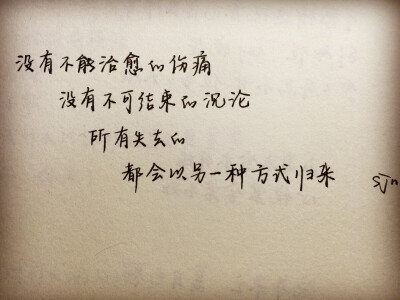 没有不能治愈的伤痛
没有不可结束的沉沦
所有失去的
都会以另一种方式归来
sjn